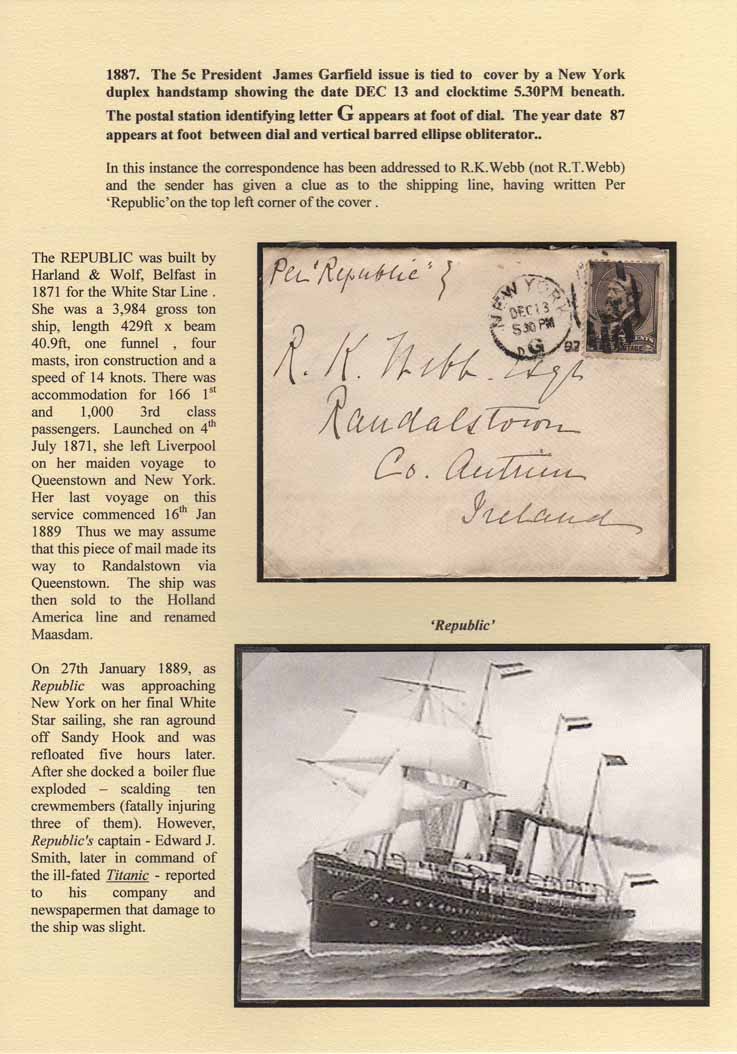 1887. The 5c President James Garfield issue is tied to cover by a New York
duplex handstamp showing the date DEC 13 and clocktime 5.30PM beneath.
The postal station identifying letter G appears at foot of dial. The year date 87
appears at foot between dial and vertical barred ellipse obliterator..
In this instance the correspondence has been addressed to R.K.Webb (not R.T.Webb)
and the sender has given a clue as to the shipping line, having written Per
‘Republic’on the top left corner of the cover .
The REPUBLIC was built by
Harland & Wolf, Belfast in
1871 for the White Star Line .
She was a 3,984 gross ton
ship, length 429ft x beam
40.9ft, one funnel , four
masts, iron construction and a
speed of 14 knots. There was
accommodation for 166 1st
and 1,000 3rd class
passengers. Launched on 4th
July 1871, she left Liverpool
on her maiden voyage to
Queenstown and New York.
Her last voyage on this
service commenced 16th Jan
1889 Thus we may assume
that this piece of mail made its
way to Randalstown via
Queenstown. The ship was
then sold to the Holland
America line and renamed
Maasdam.
On 27th January 1889, as
Republic was approaching
New York on her final White
Star sailing, she ran aground
off Sandy Hook and was
refloated five hours later.
After she docked a boiler flue
exploded – scalding ten
crewmembers (fatally injuring
three of them). However,
Republic's captain - Edward J.
Smith, later in command of
the ill-fated Titanic - reported
to his company and
newspapermen that damage to
the ship was slight.
Per "Republic"
NEW YORK
DEC 13
5 30 PM
G
87
R. K. Webb. Esqr
Randalstown
Co. Antrim
Ireland
‘Republic’